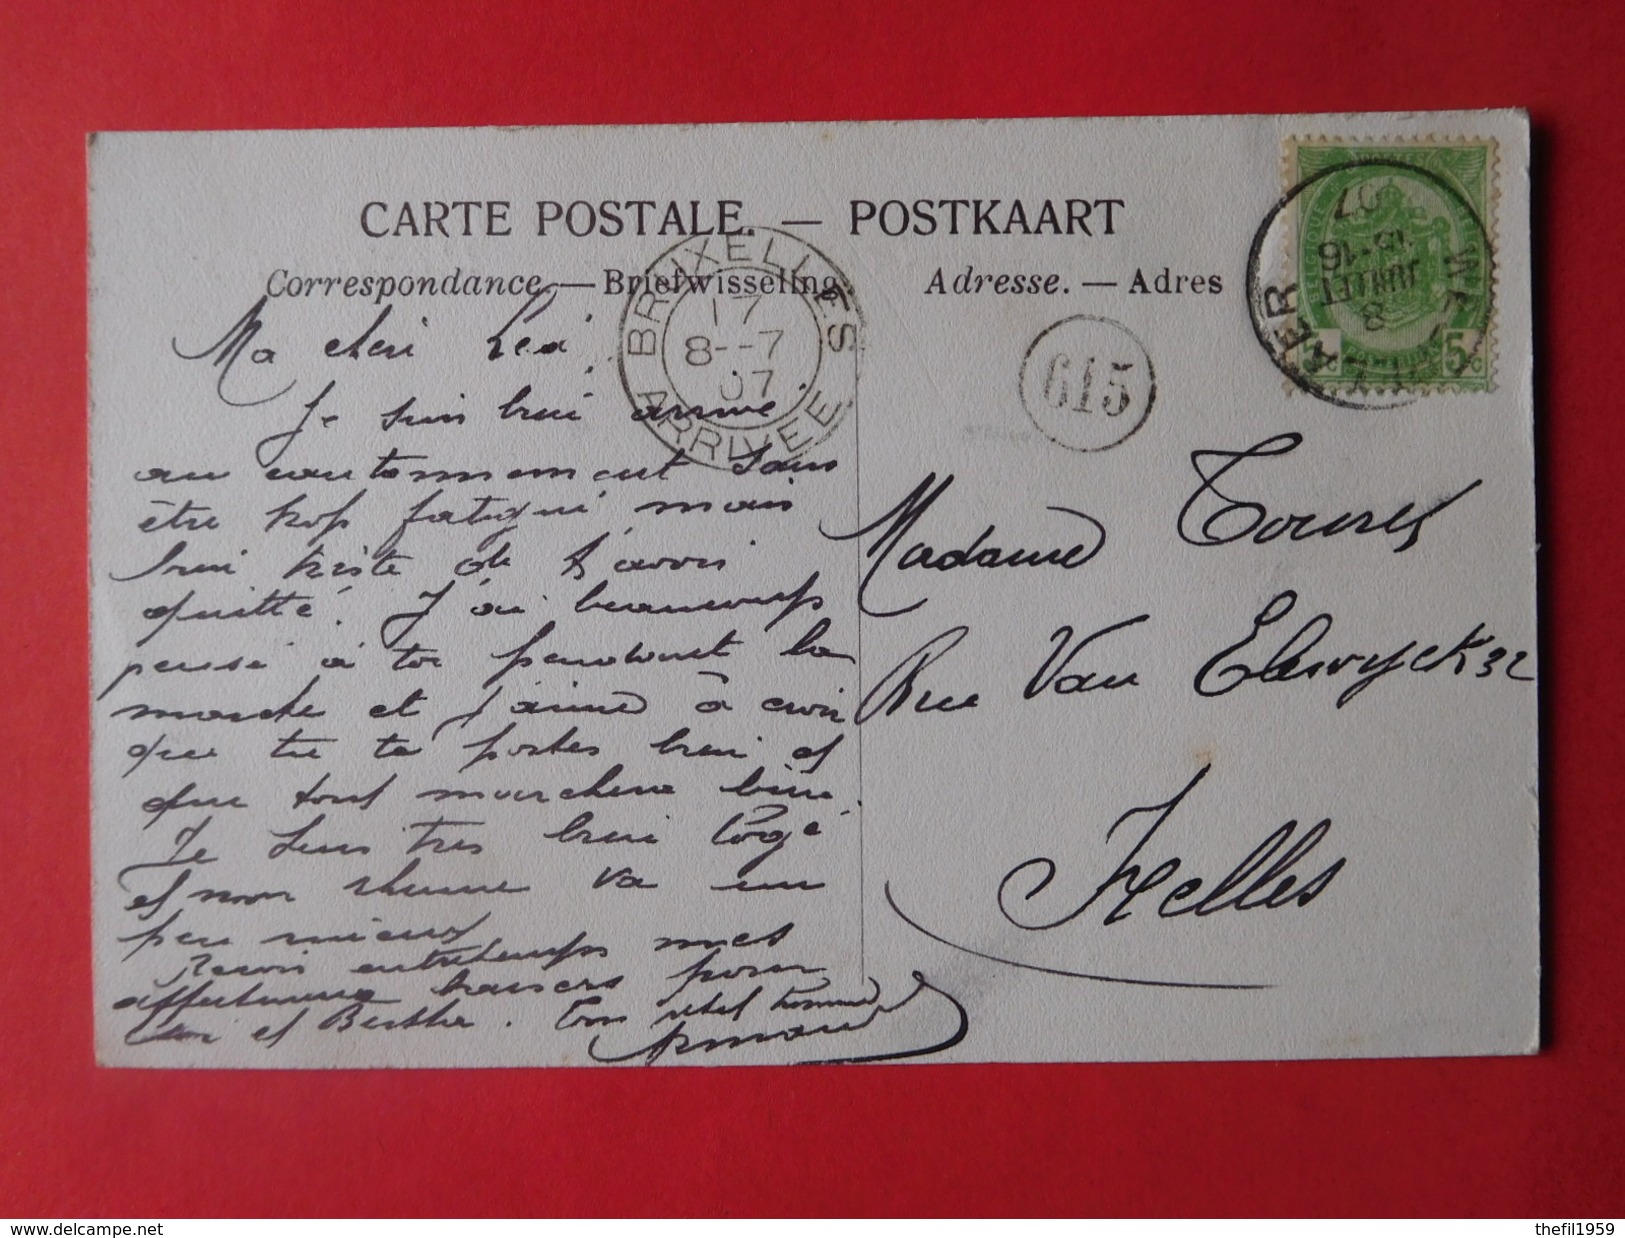 CARTE POSTALE. — POSTKAART
Correspondance. — Briefwisseling.
Adresse. — Adres
BRUXELLES
17
8--7
07
ARRIVEE
615
8
JUILLET
15-16
07
5c 5c
Ma cheri Léa,
Je suis bien arrivé
au cantonnement sans
être trop fatigué mais
bien triste de t'avoir
quitté. J'ai beaucoup
pensé à toi pendant la
marche et j'aime à croire
que tu te portes bien et
que tout marchera bien.
Je suis très bien logé
et mon rhume va un
peu mieux
Reçois entretemps mes
affectueux baisers pour
toi et Berthe. Ton petit homme
Armand
Madame
Rue Van Elewyck 32
Ixelles
thefil1959
www.delcampe.net